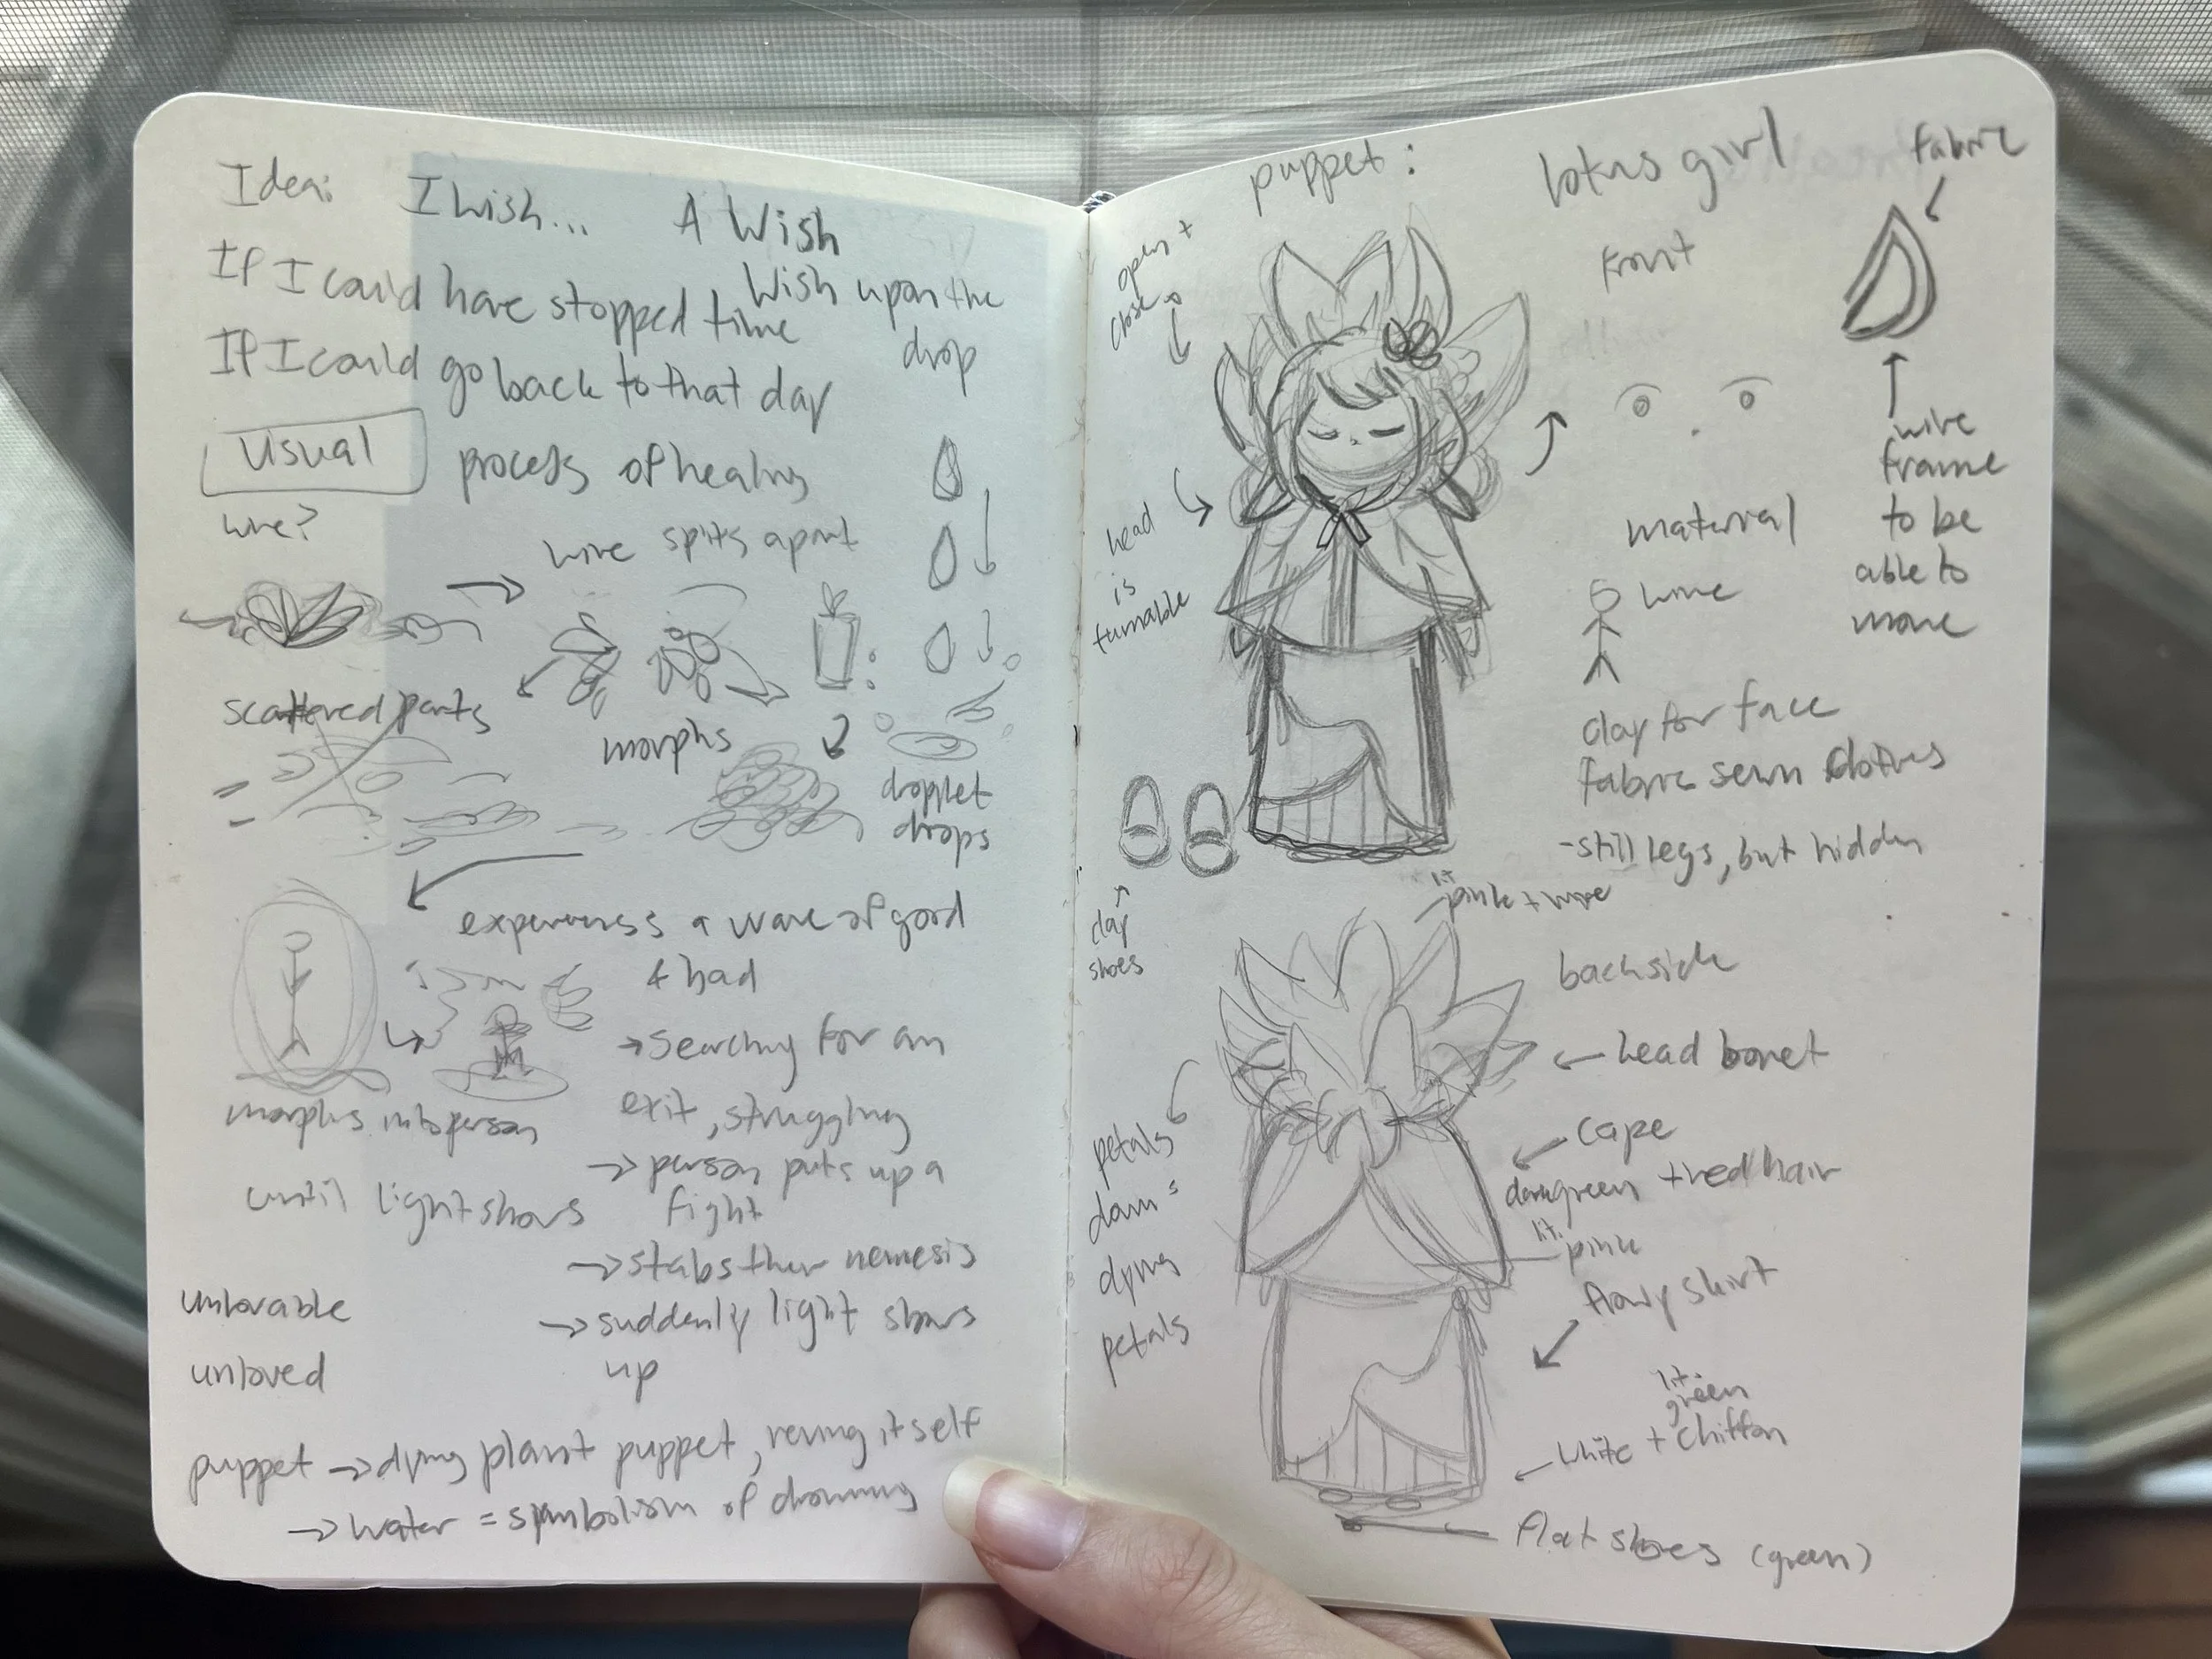 Idea: I wish... A Wish
If I could have stopped time
Wish upon the
drop
If I could go back to that day
Usual process of healing
wire?
wire spits apart
scattered parts
morphs
droplet
drops
experiences a wave of good
& bad
→ searching for an
exit, struggling
morphs into person
→ person puts up a
fight
until light shows
→ stabs their nemesis
→ suddenly light shows
up
unlovable
unloved
puppet → dying plant puppet, reving itself
→ water = symbolism of drowning
puppet: lotus girl
fabric
Front
open +
close
wire
frame
to be
able to
move
head
is
turnable
material
wire
clay for face
fabric sewn clothes
- still legs, but hidden
clay
shoes
lit. pink + wire
backside
head bonet
petals
down =
dying
petals
cape
dark green + red hair
lit. pink
flowy skirt
lit.
green
white + chiffon
flat shoes (green)